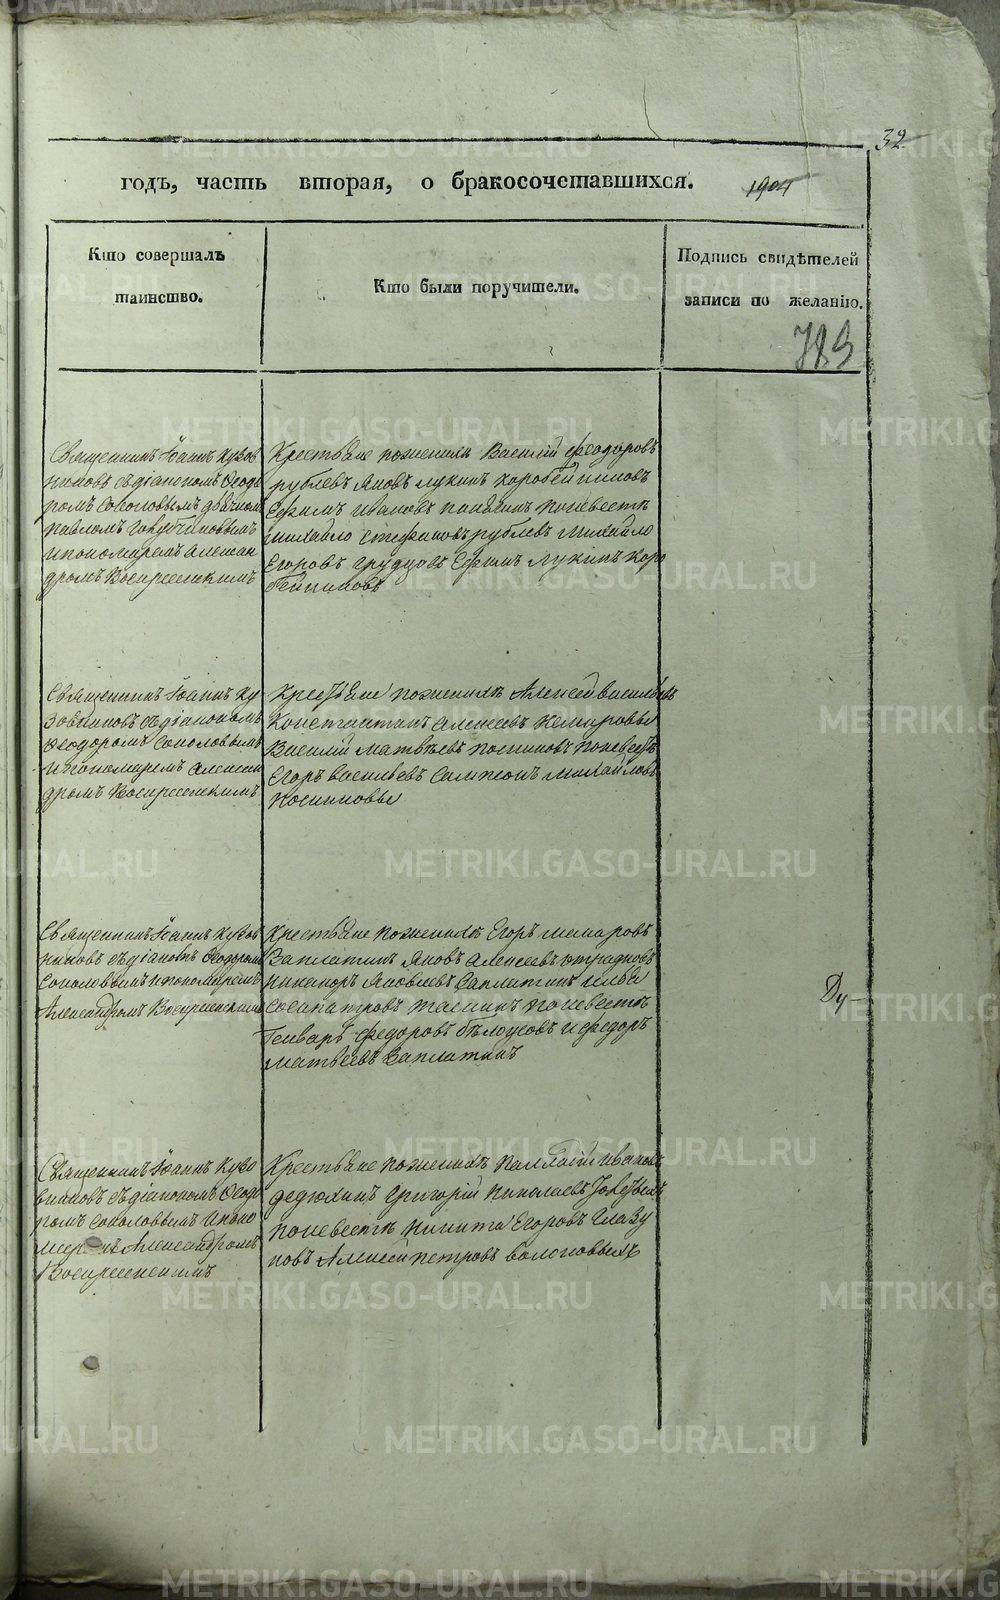 32
годъ, часть вторая, о бракосочетавшихся. 1904
Кто совершалъ
таинство.
Кто были поручители.
Подпись свидѣтелей
записи по желанію.
789
Священникъ Іоаннъ Кузов
никовъ съ діакономъ Феодо
ромъ Соколовымъ дьячкомъ
Павломъ
и пономаремъ Алексан
дромъ Воскресенскимъ
Крестьяне по женихѣ Василій Феодоровъ
Рублевъ Яковъ Лукинъ Коробейниковъ
Ефимъ Ивановъ по невестѣ
Михайло Стефановъ Рублевъ Михайло
Егоровъ Груздовъ Ефимъ Лукинъ Коро
бейниковъ
Священникъ Іоаннъ Ку
зовниковъ съ діакономъ
Феодоромъ Соколовымъ
и пономаремъ Алексан
дромъ Воскресенскимъ
Крестьяне по женихѣ Алексей Васильевъ
Константинъ Алексеевъ Комаровы
Василій Матвѣевъ Посниковъ по невестѣ
Егоръ Васильевъ Сампсонъ Михайловъ
Посниковы
Священникъ Іоаннъ Кузов
никовъ съ діакономъ Феодоромъ
Соколовымъ и пономаремъ
Александромъ Воскресенскимъ
Крестьяне по женихѣ Егоръ Макаровъ
Заплатинъ Яковъ Алексеевъ Отрадновъ
Никаноръ Яковлевъ Заплатинъ Илья
Сосипатровъ по невестѣ
Генварь Федоровъ Бѣлоусовъ и Федоръ
Матвеевъ Заплатинъ
Ду-
Священникъ Іоаннъ Кузо
вниковъ съ діакономъ Феодо
ромъ Соколовымъ и поно
маремъ Александромъ
Воскресенскимъ
Крестьяне по женихѣ Иванов
Дедюхинъ Григорій Николаевъ
по невестѣ Никита Егоровъ Глазу
новъ Алексей Петровъ Волоковыхъ
METRIKI.GASO-URAL.RU